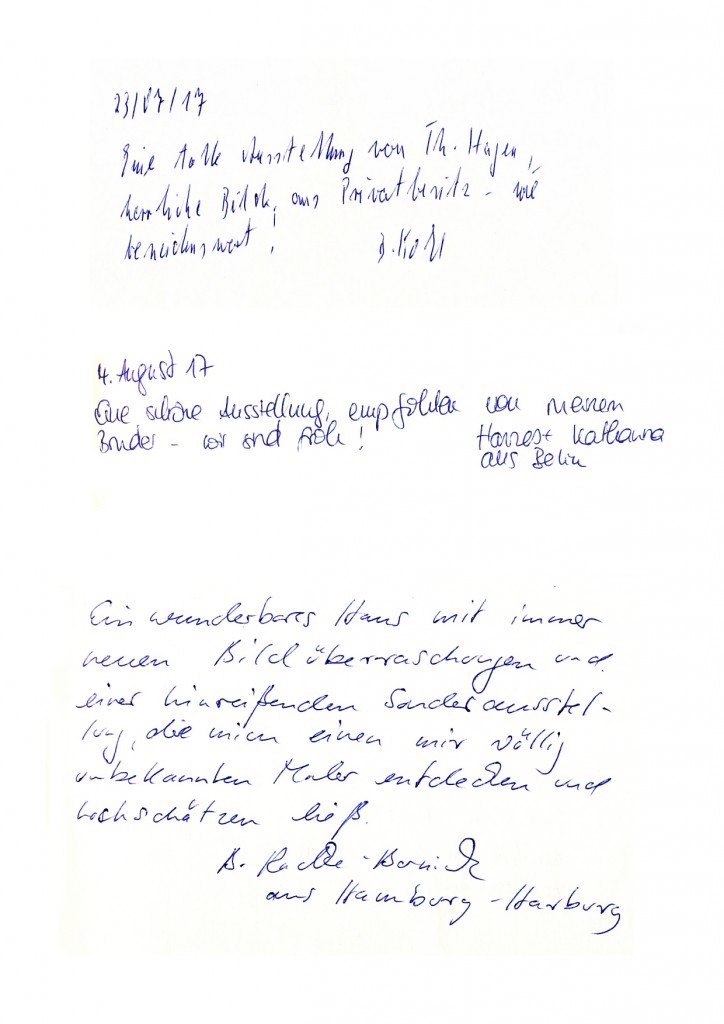 23/07/17
Eine tolle Ausstellung von Th. Hagen,
herrliche Bilder aus Privatbesitz - wie
beneidenswert!
4. August 17
Eine schöne Ausstellung, empfohlen von meinem
Bruder - wir sind froh! Hannes + Katharina
aus Berlin
Ein wunderbares Haus mit immer
neuen Bildüberraschungen und
einer hinreißenden Sonderausstel-
lung, die mich einen mir völlig
unbekannten Maler entdecken und
hochschätzen ließ.
B.
aus Hamburg-Harburg